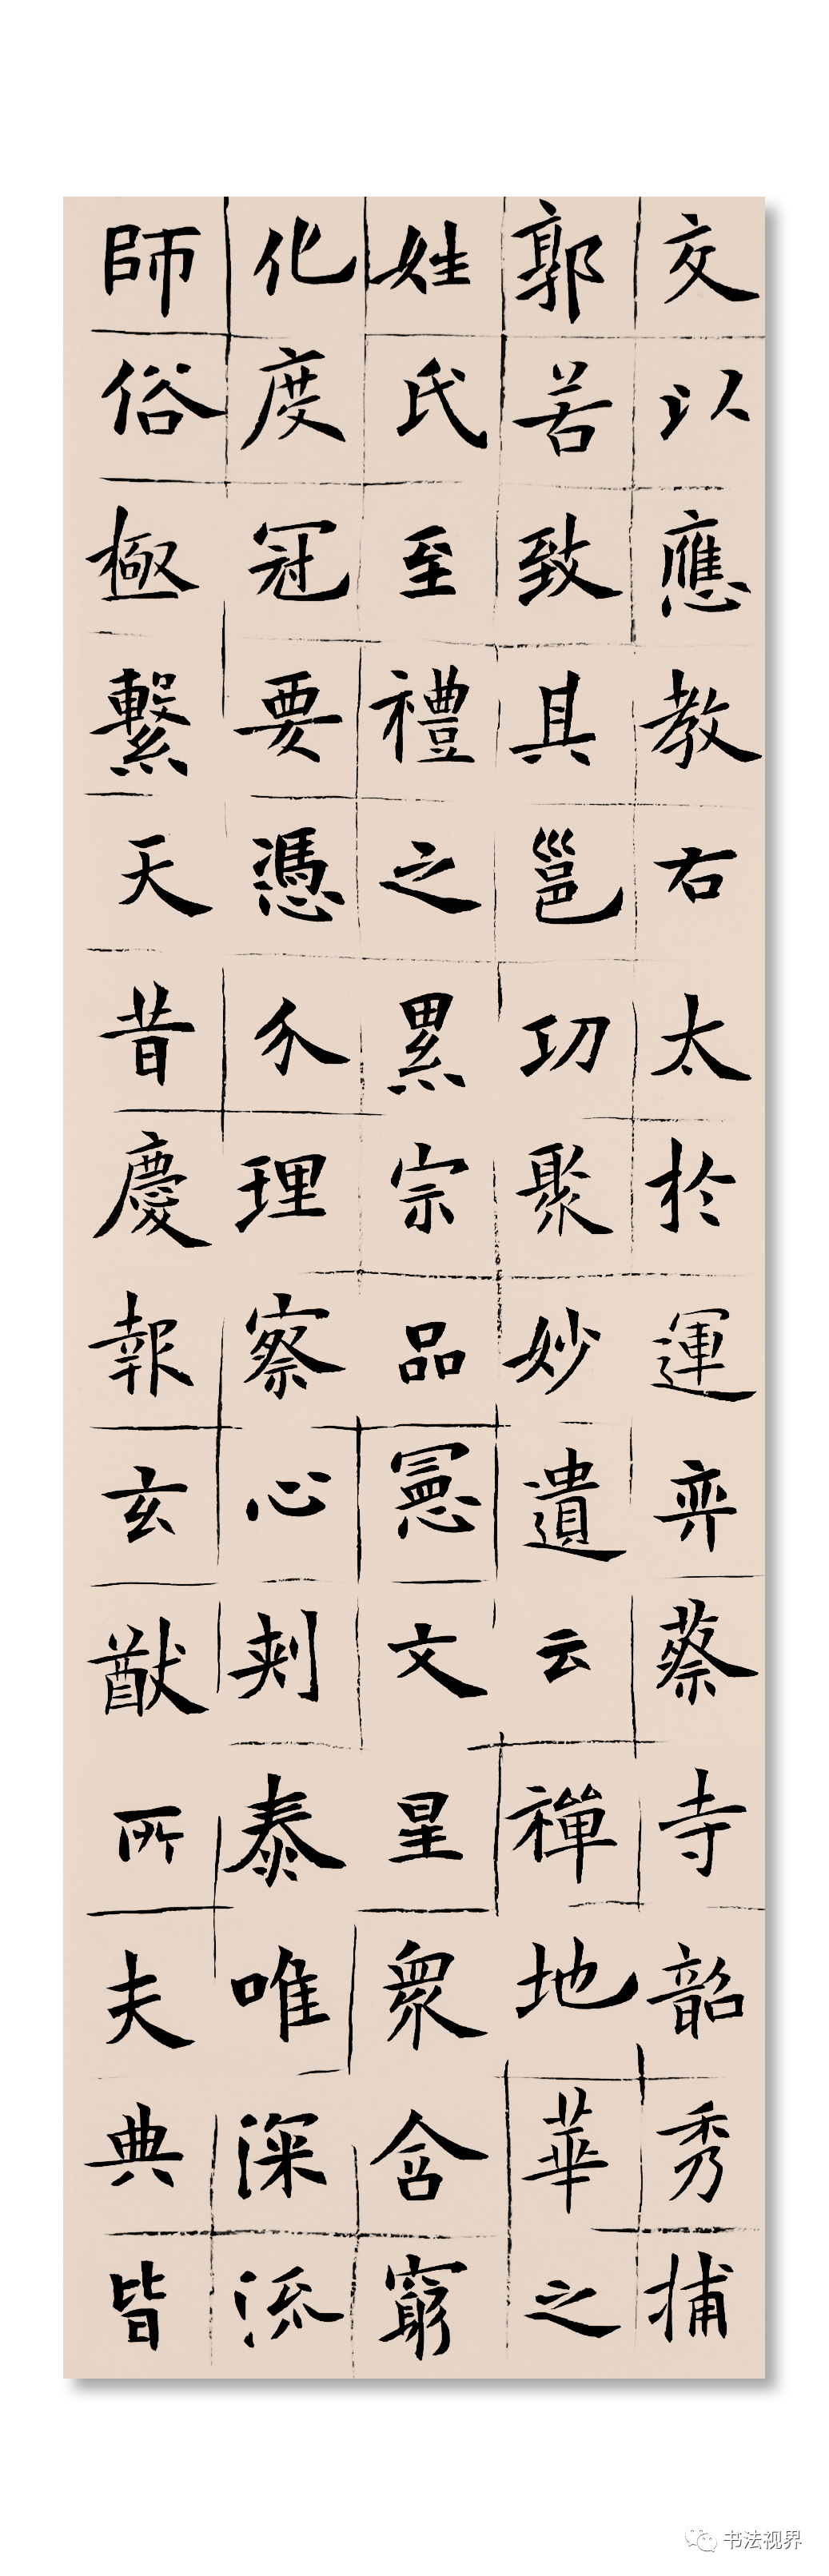 交以應教右太於運弈蔡寺韶秀捕
郭若致具邕功聚妙遺云禪地華之
姓氏至禮之累宗品憲文星眾含窮
化度冠要憑介理察心刺泰唯深流
師俗極繫天昔慶報玄猷所夫典皆
书法视界